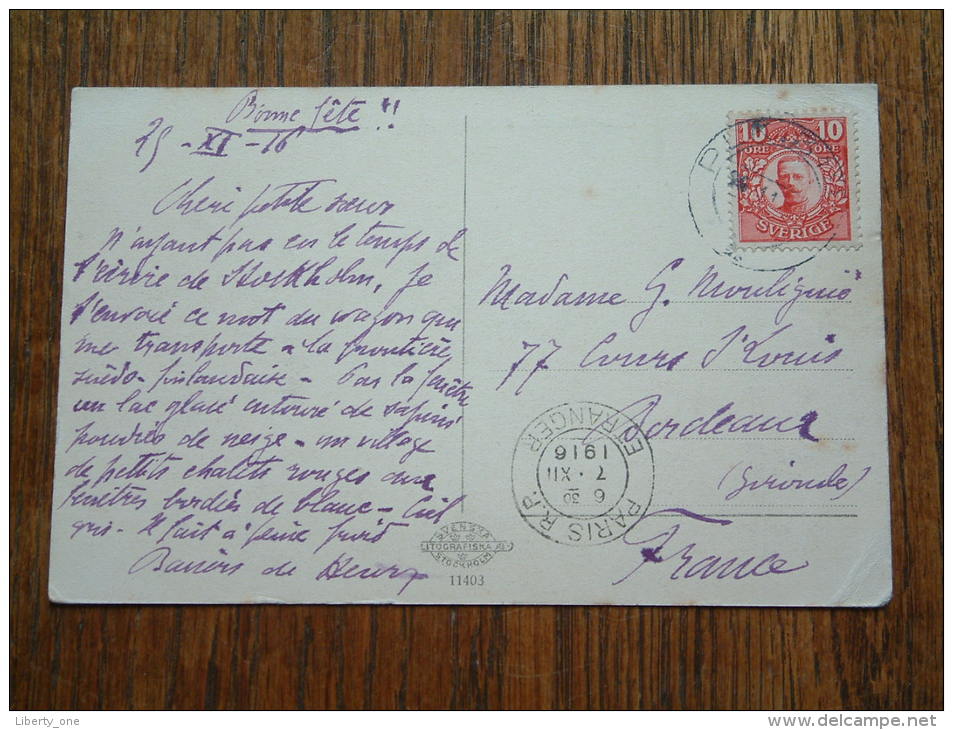 Bonne fête !!
25 - XI - 16
Chère petite sœur
N'ayant pas eu le temps de
t'écrire de Stockholm, je
t'envoie ce mot du wagon qui
me transporte à la frontière
suédo-finlandaise - Par la fenêtre
un lac glacé entouré de sapins
poudrés de neige - un village
de petits chalets rouges aux
fenêtres bordés de blanc - Ciel
gris - Il fait à peine froid
Baisers de Henry
SVENSKA
LITOGRAFISKA AB
STOCKHOLM
11403
10 10
ÖRE ÖRE
SVERIGE
Madame G.
77 Cours St Louis
Bordeaux
(Gironde)
France
PARIS R.P. ETRANGER
6 30
7 - XII
1916
Liberty_one
http://www.delcampe.net